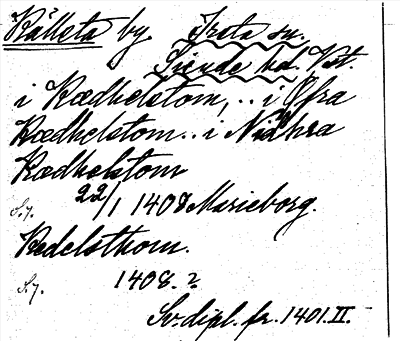 Källsta by Irsta sn.
Siende hd. Vst.
i Kædhelstom, .. i Øfra
Kædhelstom .. i Nidhra
Kædhelstom
S.7. 22/1 1408 Marieborg.
Kedelsthom.
S.7. 1408. ?
Sv. dipl. fr. 1401. II.